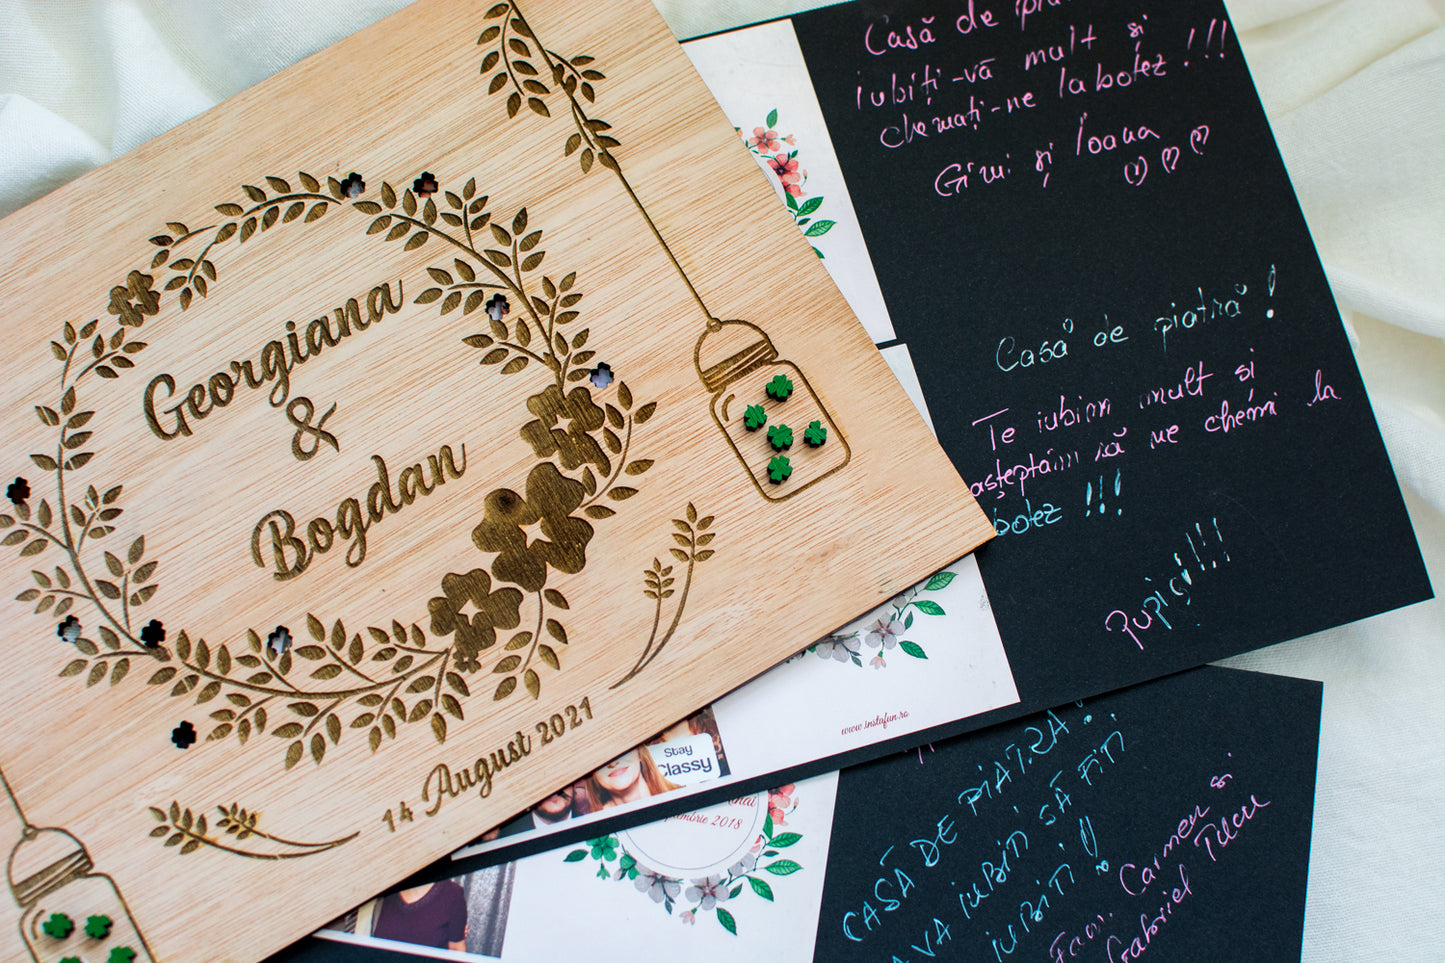 Georgiana
&
Bogdan
14 August 2021
Casă de
iubiți-vă mult și
chemați-ne la botez!!!
Gimi și Ioana
Casă de piatră!
Te iubim mult și
așteptăm să ne chemi la
botez!!!
Pupici!!!
www.instafun.ro
Stay
Classy
2018
CASĂ DE PIATRA
VA IUBITI SĂ FITI
IUBITI!
Fam. Carmen si
Gabriel